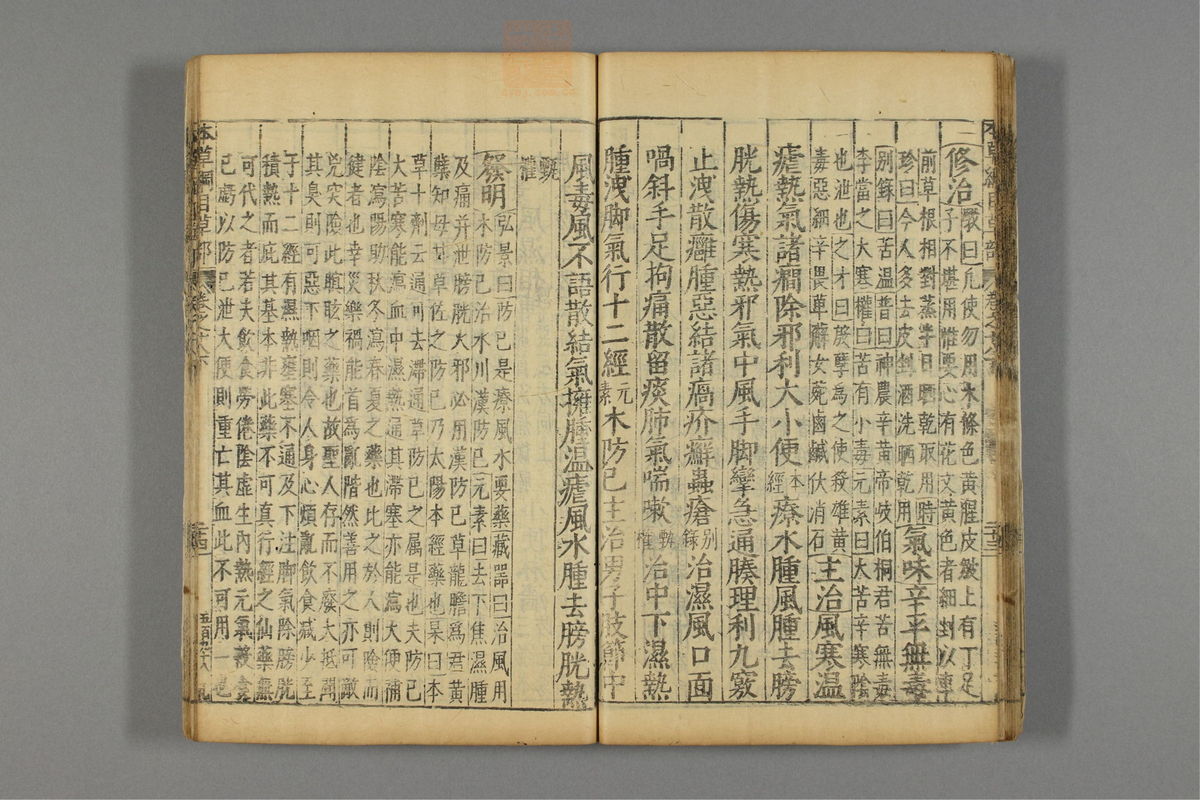 修治 斆曰凡使勿用木條色黃腥皮皺上有丁足
子不堪用惟要心有花文黃色者細剉以車
前草根相對蒸半日曬乾取用時
珍曰今人多去皮剉酒洗晒乾用 氣味辛平無毒
別錄曰苦溫普曰神農辛黃帝岐伯桐君苦無毒
李當之大寒權曰苦有小毒元素曰大苦辛寒陰
也泄也之才曰殷孽爲之使殺雄黃
毒惡細辛畏萆薢女菀鹵鹹伏消石 主治風寒溫
瘧熱氣諸癇除邪利大小便 本經 療水腫風腫去膀
胱熱傷寒熱邪氣中風手脚攣急通腠理利九竅
止洩散癰腫惡結諸瘑疥癬蟲瘡 別錄 治濕風口面
喎斜手足拘痛散留痰肺氣喘嗽 甄權 治中下濕熱
腫洩脚氣行十二經 元素 木防已主治男子肢節中
風毒風不語散結氣擁腫溫瘧風水腫去膀胱熱
甄權
發明 弘景曰防已是療風水要藥藏器曰治風用
木防已治水用漢防已元素曰去下焦濕腫
及痛并泄膀胱火邪必用漢防已草龍膽爲君黃
藥知母甘草佐之防已乃太陽本經藥也杲曰本
草十劑云通可去滯通草防已之屬是也夫防已
大苦寒能瀉血中濕熱通其滯塞亦能瀉大便補
陰瀉陽助秋冬瀉春夏之藥也此之於人則險而
健者也幸災樂禍能首爲亂階然善用之亦可敵
兇突險此瞑眩之藥也故聖人存而不廢大抵聞
其臭則可惡下咽則令人身心煩亂飲食減少至
于十二經有濕熱壅塞不通及下注脚氣除膀胱
積熱而庇其基本非此藥不可真行經之仙藥無
可代之者若夫飲食勞倦陰虛生內熱元氣穀食
已虧以防已泄大便則重亡其血此不可用一也
本草綱目草部 卷之十八 二十四